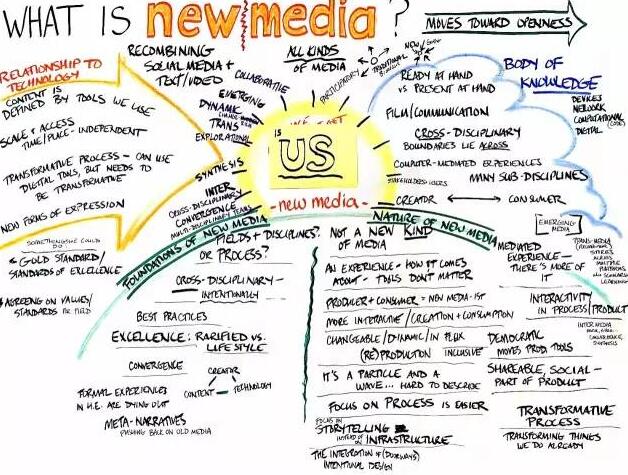 WHAT IS new media?
MOVES TOWARD OPENNESS
RELATIONSHIP TO
TECHNOLOGY
CONTENT IS
DEFINED BY TOOLS WE USE
SCALE + ACCESS
TIME/PLACE-INDEPENDENT
TRANSFORMATIVE PROCESS - CAN USE
DIGITAL TOOLS, BUT NEEDS TO
BE TRANSFORMATIVE
NEW FORMS OF EXPRESSION
SOMETHING WE COULD
DO:
"GOLD STANDARD/
STANDARDS OF EXCELLENCE
AGREEING ON VALUES/
STANDARDS
RECOMBINING
SOCIAL MEDIA +
TEXT/VIDEO
ALL KINDS
OF MEDIA
COLLABORATIVE
PARTICIPATORY
TRADITIONAL
NEW
EMERGING
DYNAMIC
TRANS
EXPLORATIONAL
SYNTHESIS
INTER
CROSS-DISCIPLINARY
CONVERGENCE
MULTI-DISCIPLINARY TEAMS
IS
US
-new media-
READY AT HAND
VS PRESENT AT HAND
FILM/COMMUNICATION
CROSS-DISCIPLINARY
BOUNDARIES LIE ACROSS
COMPUTER-MEDIATED EXPERIENCES
STAKEHOLDERS/USERS
MANY SUB-DISCIPLINES
CREATOR CONSUMER
BODY OF
KNOWLEDGE
DEVICES
NETWORK
COMPUTATIONAL
DIGITAL (CODE)
EMERGING
MEDIA
FOUNDATIONS OF NEW MEDIA
FIELDS + DISCIPLINES?
OR PROCESS?
CROSS-DISCIPLINARY-
INTENTIONALLY
BEST PRACTICES
EXCELLENCE: RARIFIED VS.
LIFESTYLE
CONVERGENCE
CREATOR
CONTENT TECHNOLOGY
FORMAL EXPERIENCES
IN H.E. ARE DYING OUT
META-NARRATIVES
PUSHING BACK ON OLD MEDIA
NATURE OF NEW MEDIA
NOT A NEW KIND
OF MEDIA
AN EXPERIENCE - HOW IT COMES
ABOUT - TOOLS DON'T MATTER
PRODUCER + CONSUMER = NEW MEDIA-IST
MORE INTERACTIVE/CREATION + CONSUMPTION
CHANGEABLE/DYNAMIC/IN FLUX
(RE)PRODUCTION INCLUSIVE
IT'S A PARTICLE AND A
WAVE... HARD TO DESCRIBE
FOCUS ON PROCESS IS EASIER
FOCUS ON
STORYTELLING
INSTEAD OF
INFRASTRUCTURE
THE INTEGRATION OF (DOORWAYS)
INTENTIONAL DESIGN
MEDIATED
EXPERIENCE-
THERE'S MORE OF
IT
TRANS-MEDIA
STORIES
ACROSS
MULTIPLE
PLATFORMS
LEARNING
INTERACTIVITY
IN PROCESS/PRODUCT
INTER MEDIA
DEMOCRATIC
MOVES PROD. TOOLS
SHAREABLE, SOCIAL-
PART OF PRODUCT
TRANSFORMATIVE
PROCESS
TRANSFORMING THINGS
WE DO ALREADY